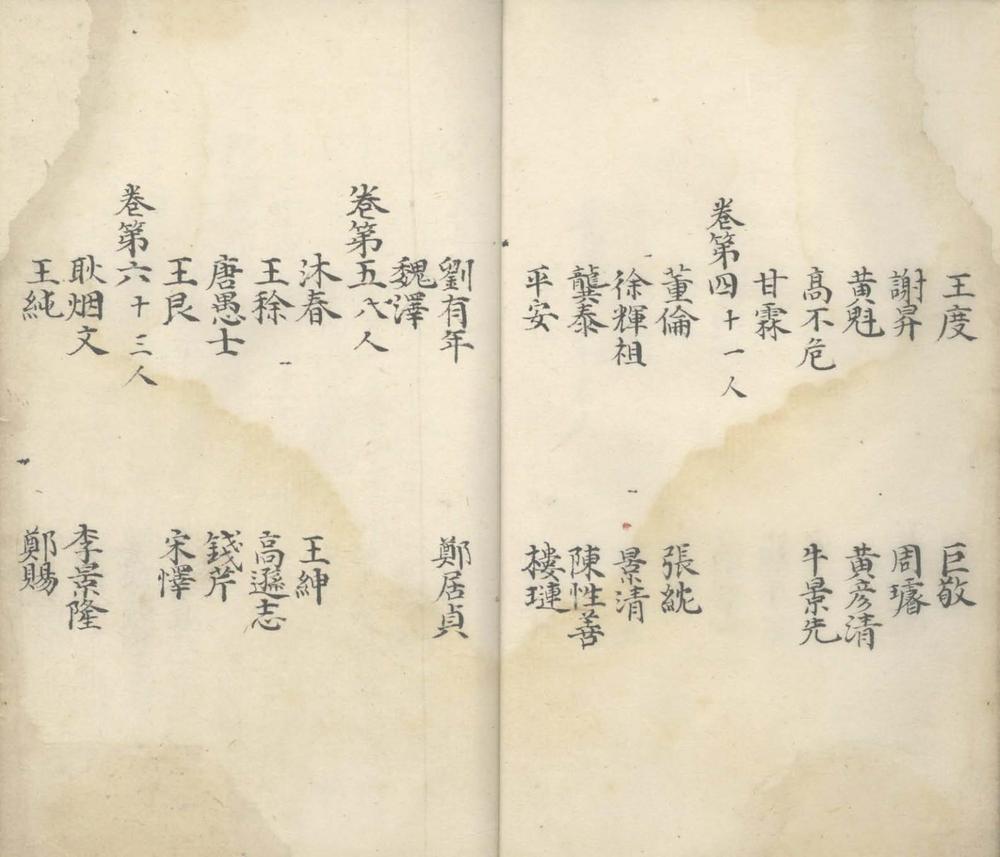 王度 巨敬
謝昇 周璿
黄魁 黄彦清
高不危 牛景先
甘霖
卷第四十一人
董倫 張紞
徐輝祖 景清
龔泰 陳性善
平安 樓璉
劉有年 鄭居貞
魏澤
卷第五八人
沐春 王紳
王稌 高遜志
唐愚士 錢芹
王艮 宋懌
卷第六十三人
耿炳文 李景隆
王純 鄭賜